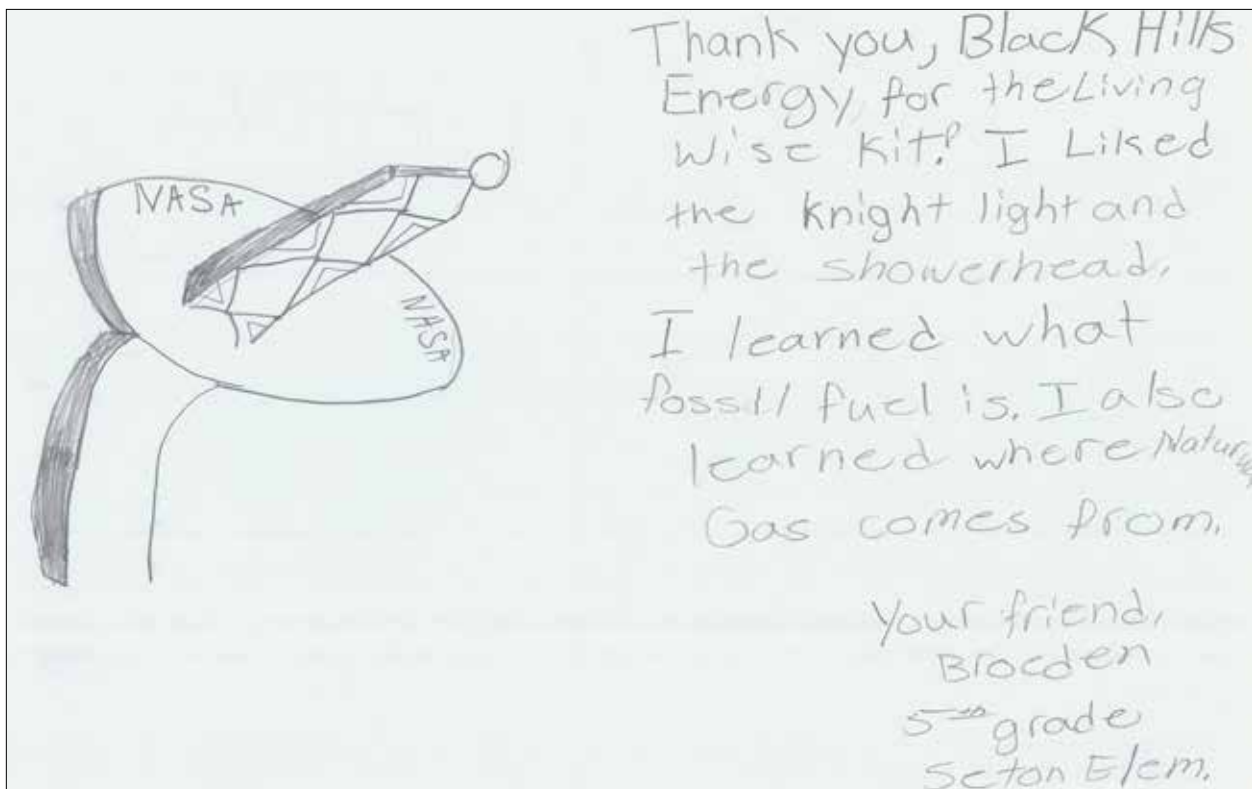 NASA
NASA
Thank you, Black Hills
Energy, for the Living
Wise Kit! I Liked
the knight light and
the showerhead.
I learned what
fossil fuel is. I also
learned where Natural
Gas comes from.
Your friend,
Brocden
5th grade
Seton Elem.